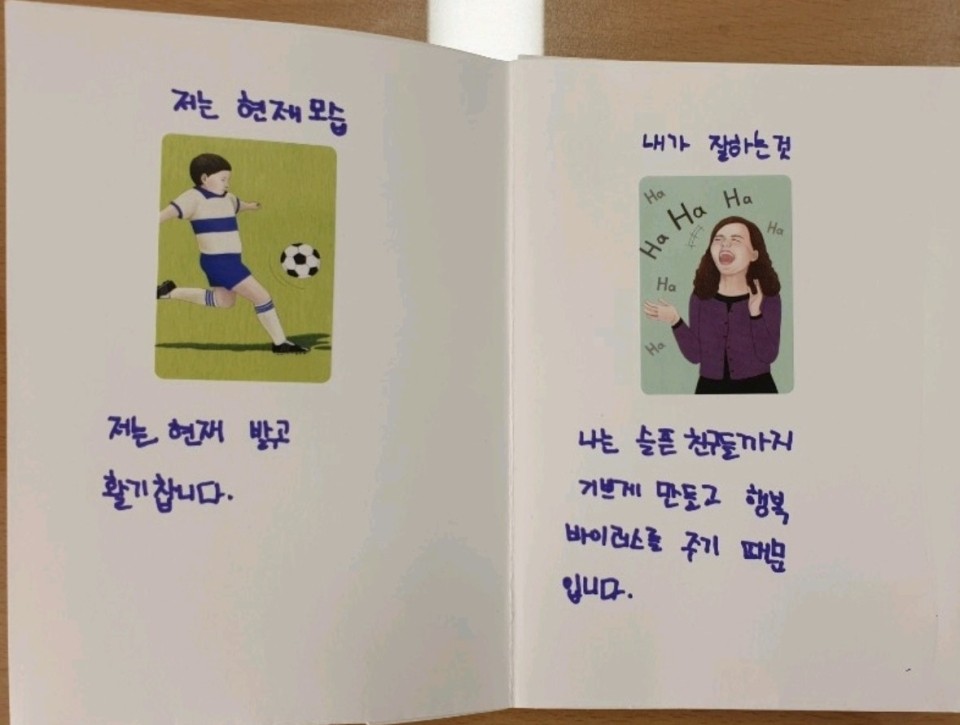 저는 현재 모습
저는 현재 밝고
활기찹니다.
내가 잘하는것
Ha
Ha
Ha
Ha
Ha
Ha
Ha
나는 슬픈 친구들까지
기쁘게 만들고 행복
바이러스를 주기 때문
입니다.